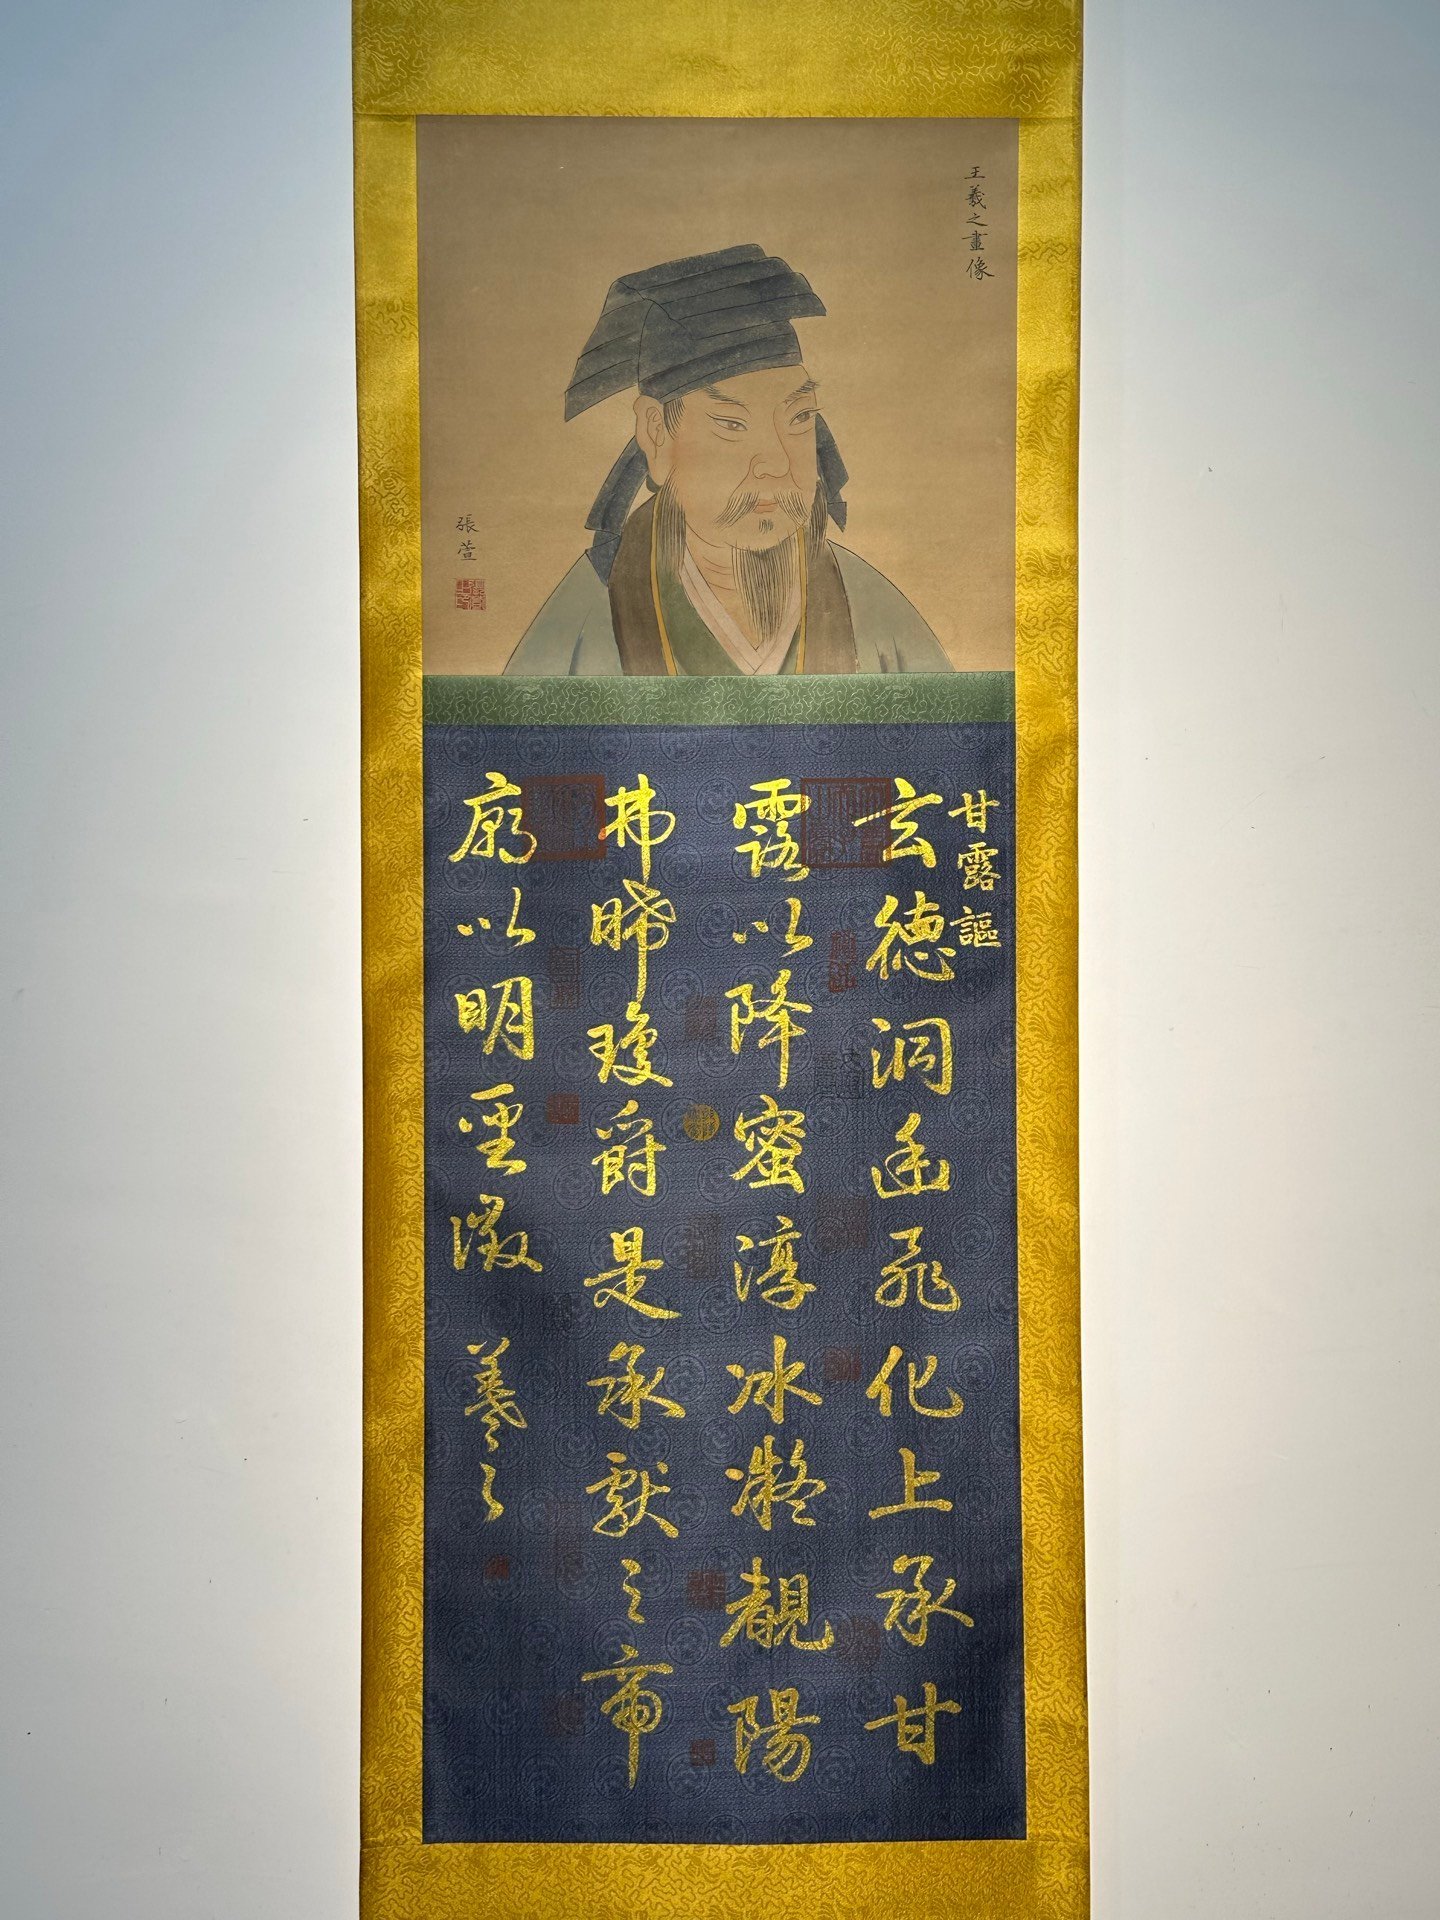 王羲之畫像
張萱
甘露謳
玄德洞幽飛化上承甘
露以降蜜淳冰凝覿陽
弗晞瓊爵是承獻之帝
廟以明聖徵
羲之